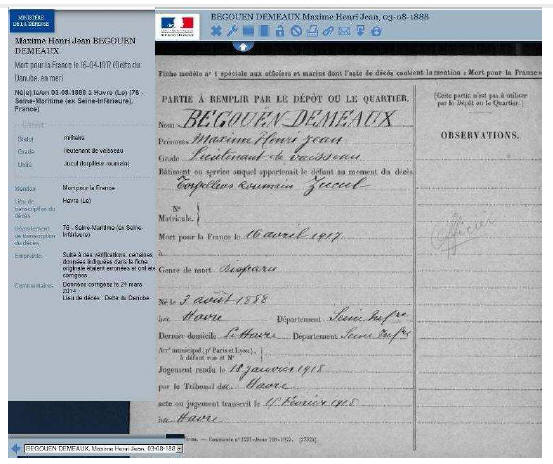 MINISTÈRE
DE LA DÉFENSE
BEGOUEN DEMEAUX Maxime Henri Jean, 03-08-1888
Maxime Henri Jean BEGOUEN
DEMEAUX
Mort pour la France le 16-04-1917 (Delta du
Danube, en mer)
Né(e) le/en 03-08-1888 à Havre (Le) (76 -
Seine-Maritime (ex Seine-Inférieure),
France)
Statut militaire
Grade lieutenant de vaisseau
Unité
Mention Mort pour la France
Lieu de transcription du décès Havre (Le)
Département de transcription du décès 76 - Seine-Maritime (ex Seine-Inférieure)
Suite à des vérifications, certaines
données indiquées dans la fiche
originale étaient erronées et ont été
corrigées
Commentaires Données corrigées le 21 mars
2014
Lieu de décès : Delta du Danube
BEGOUEN DEMEAUX, Maxime Henri Jean, 03-08-188
Fiche modèle n° 1 spéciale aux officiers et marins dont l'acte de décès contient la mention « Mort pour la France »
PARTIE À REMPLIR PAR LE DÉPÔT OU LE QUARTIER.
Nom BEGOUEN DEMEAUX
Prénoms Maxime Henri Jean
Grade Lieutenant de vaisseau
Bâtiment ou service auquel appartenait le défunt au moment du décès
Torpilleur roumain
N°
Matricule.
Mort pour la France le 16 avril 1917
à
Genre de mort Disparu
Né le 3 août 1888
Havre Département Seine Infre
Dernier domicile Le Havre Département Seine Infre
Arrt municipal (pr Paris et Lyon),
à défaut rue et N°
Jugement rendu le 18 janvier 1918
par le Tribunal du Havre
acte ou jugement transcrit le 15 Février 1918
Havre
(Cette partie n'est pas à utiliser
par le Dépôt ou le Quartier.)
OBSERVATIONS.
Officier